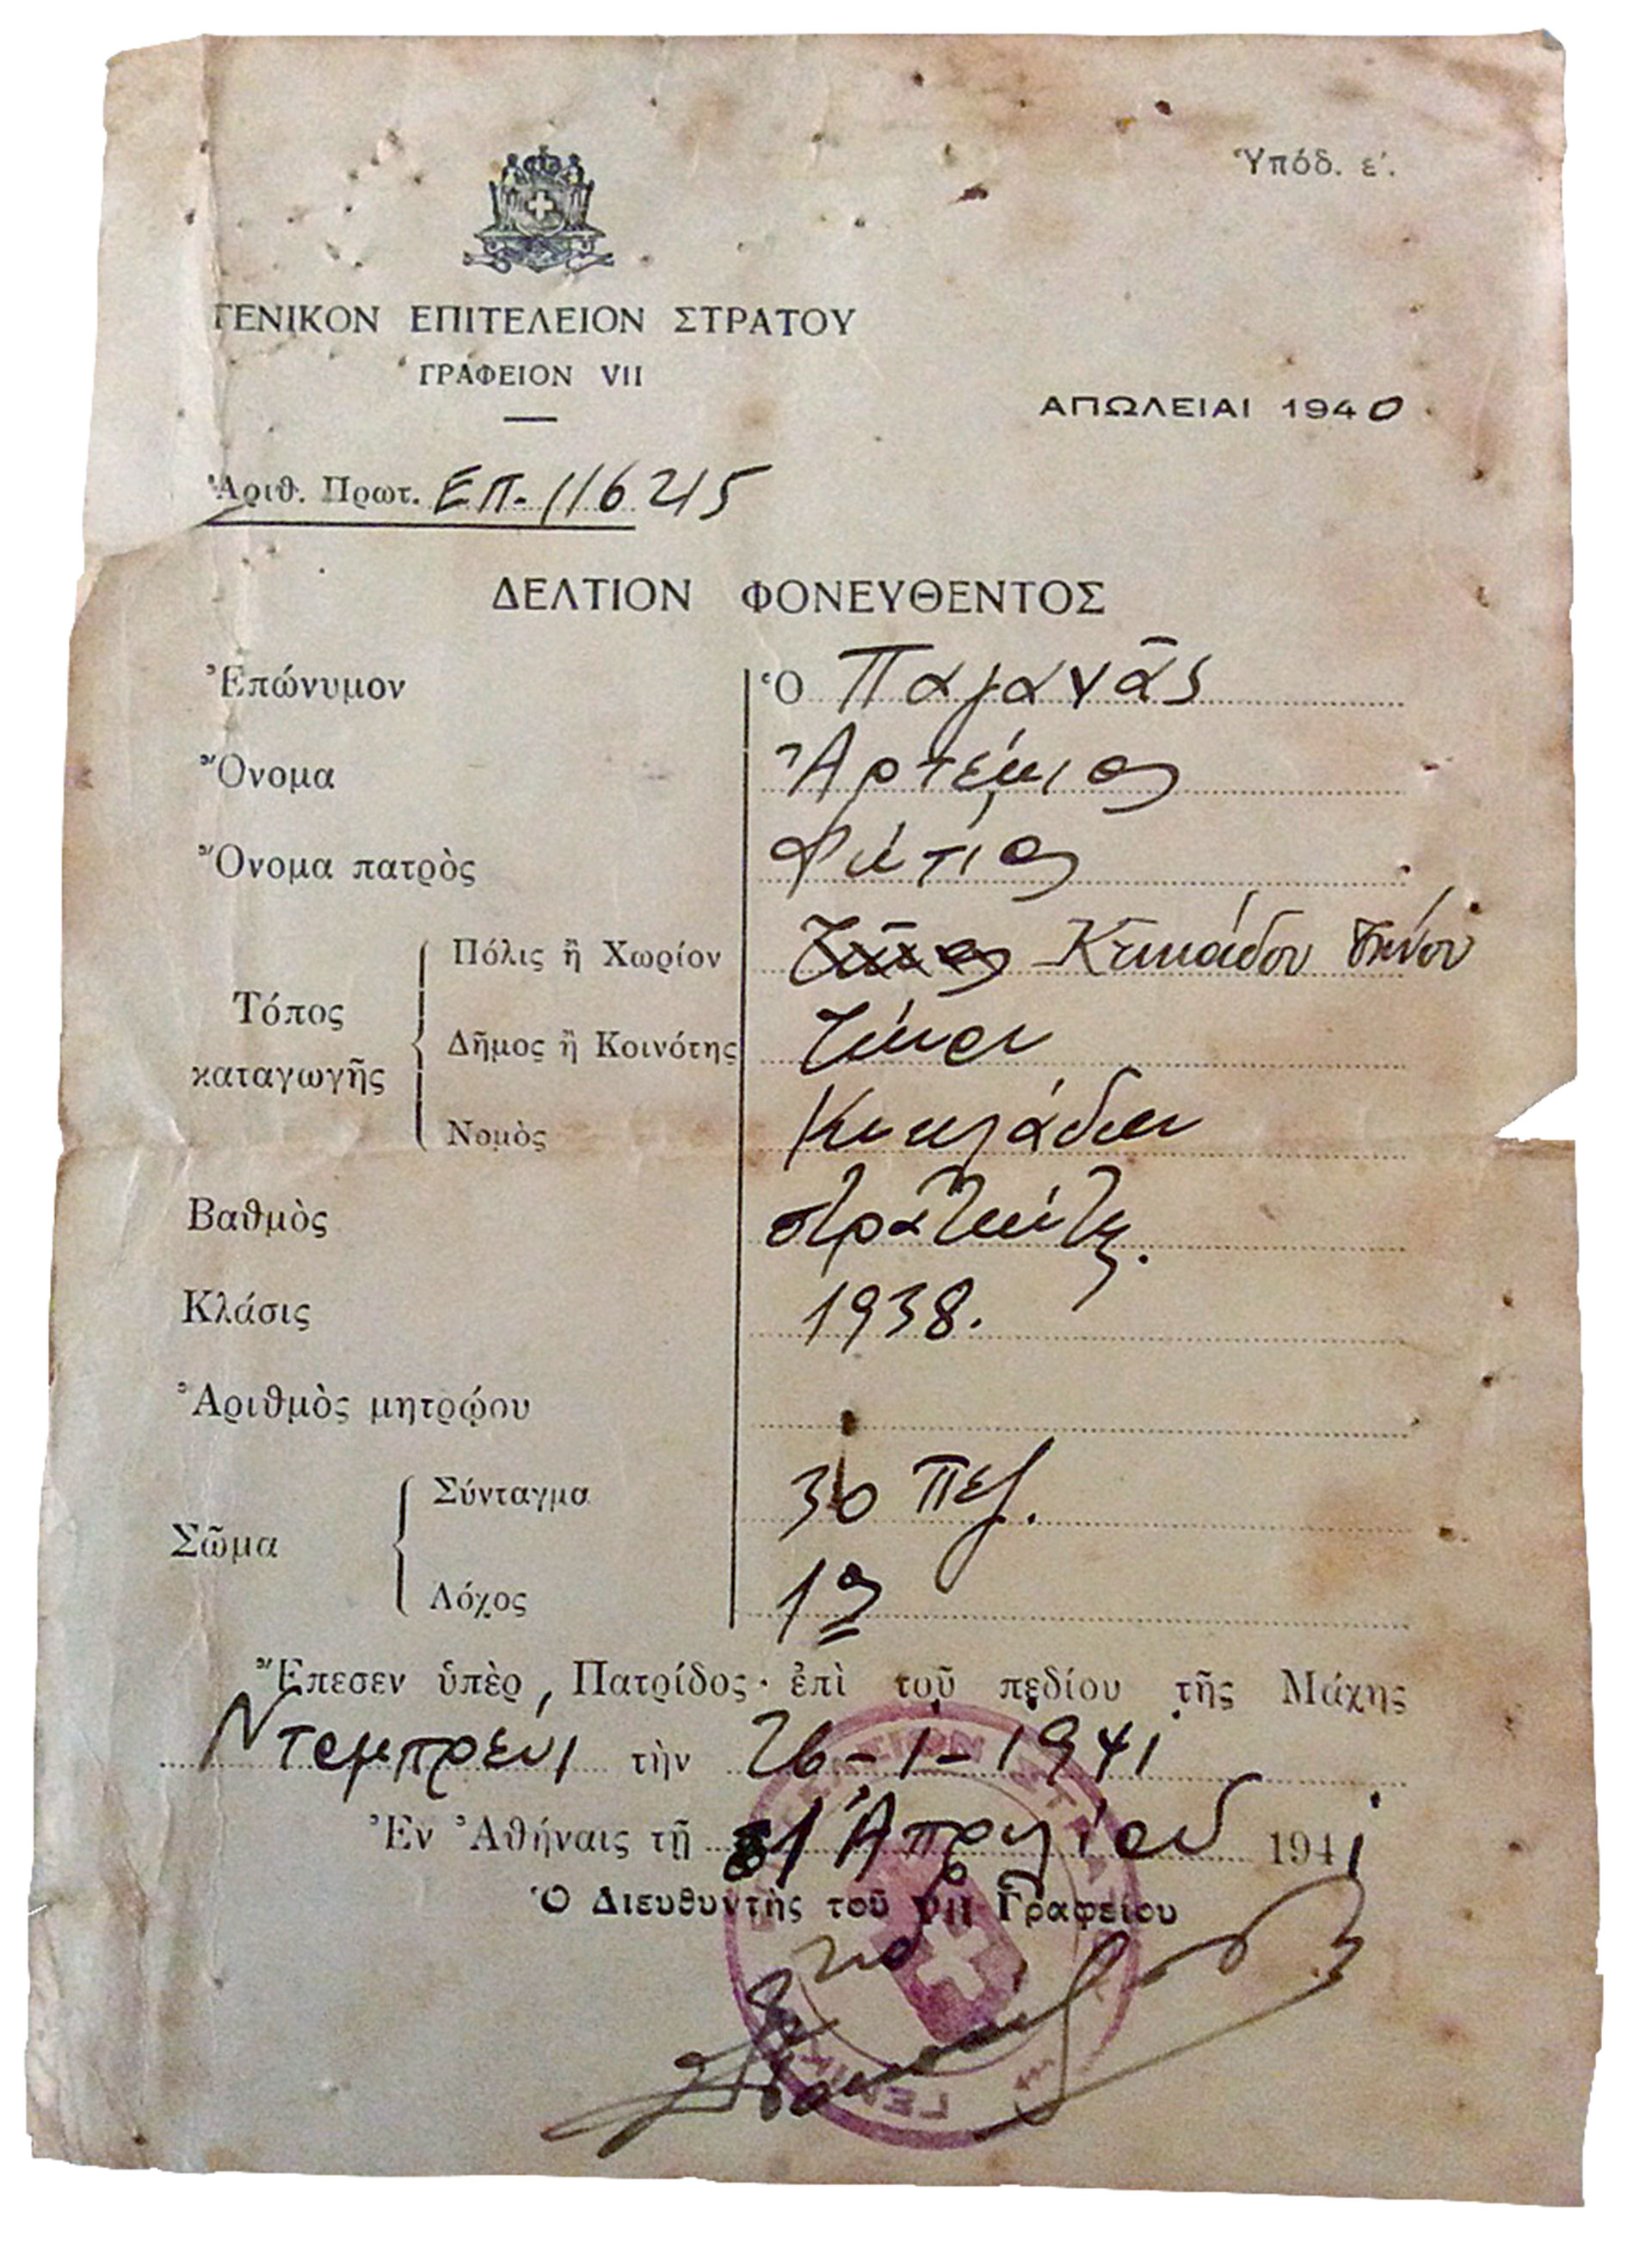 Ὑπόδ. ε΄.
ΓΕΝΙΚΟΝ ΕΠΙΤΕΛΕΙΟΝ ΣΤΡΑΤΟΥ
ΓΡΑΦΕΙΟΝ VII
ΑΠΩΛΕΙΑΙ 1940
Ἀριθ. Πρωτ. ΕΠ-116215
ΔΕΛΤΙΟΝ ΦΟΝΕΥΘΕΝΤΟΣ
Ἐπώνυμον Ὁ Παγανᾶς
Ὄνομα Ἀρτέμιος
Ὄνομα πατρὸς Φώτιος
Πόλις ἢ Χωρίον Κτικάδου Τήνου
Τόπος καταγωγῆς
Δῆμος ἢ Κοινότης
Νομὸς Κυκλάδων
Βαθμὸς στρατιώτης.
Κλάσις 1938.
Ἀριθμὸς μητρῴου
Σῶμα
Σύνταγμα 30 Πεζ.
Λόχος
Ἔπεσεν ὑπὲρ Πατρίδος ἐπὶ τοῦ πεδίου τῆς Μάχης
Ντομπρένι τὴν 26-1-1941
Ἐν Ἀθήναις τῇ Ἀπριλίου 1941
Ὁ Διευθυντὴς τοῦ VII Γραφείου